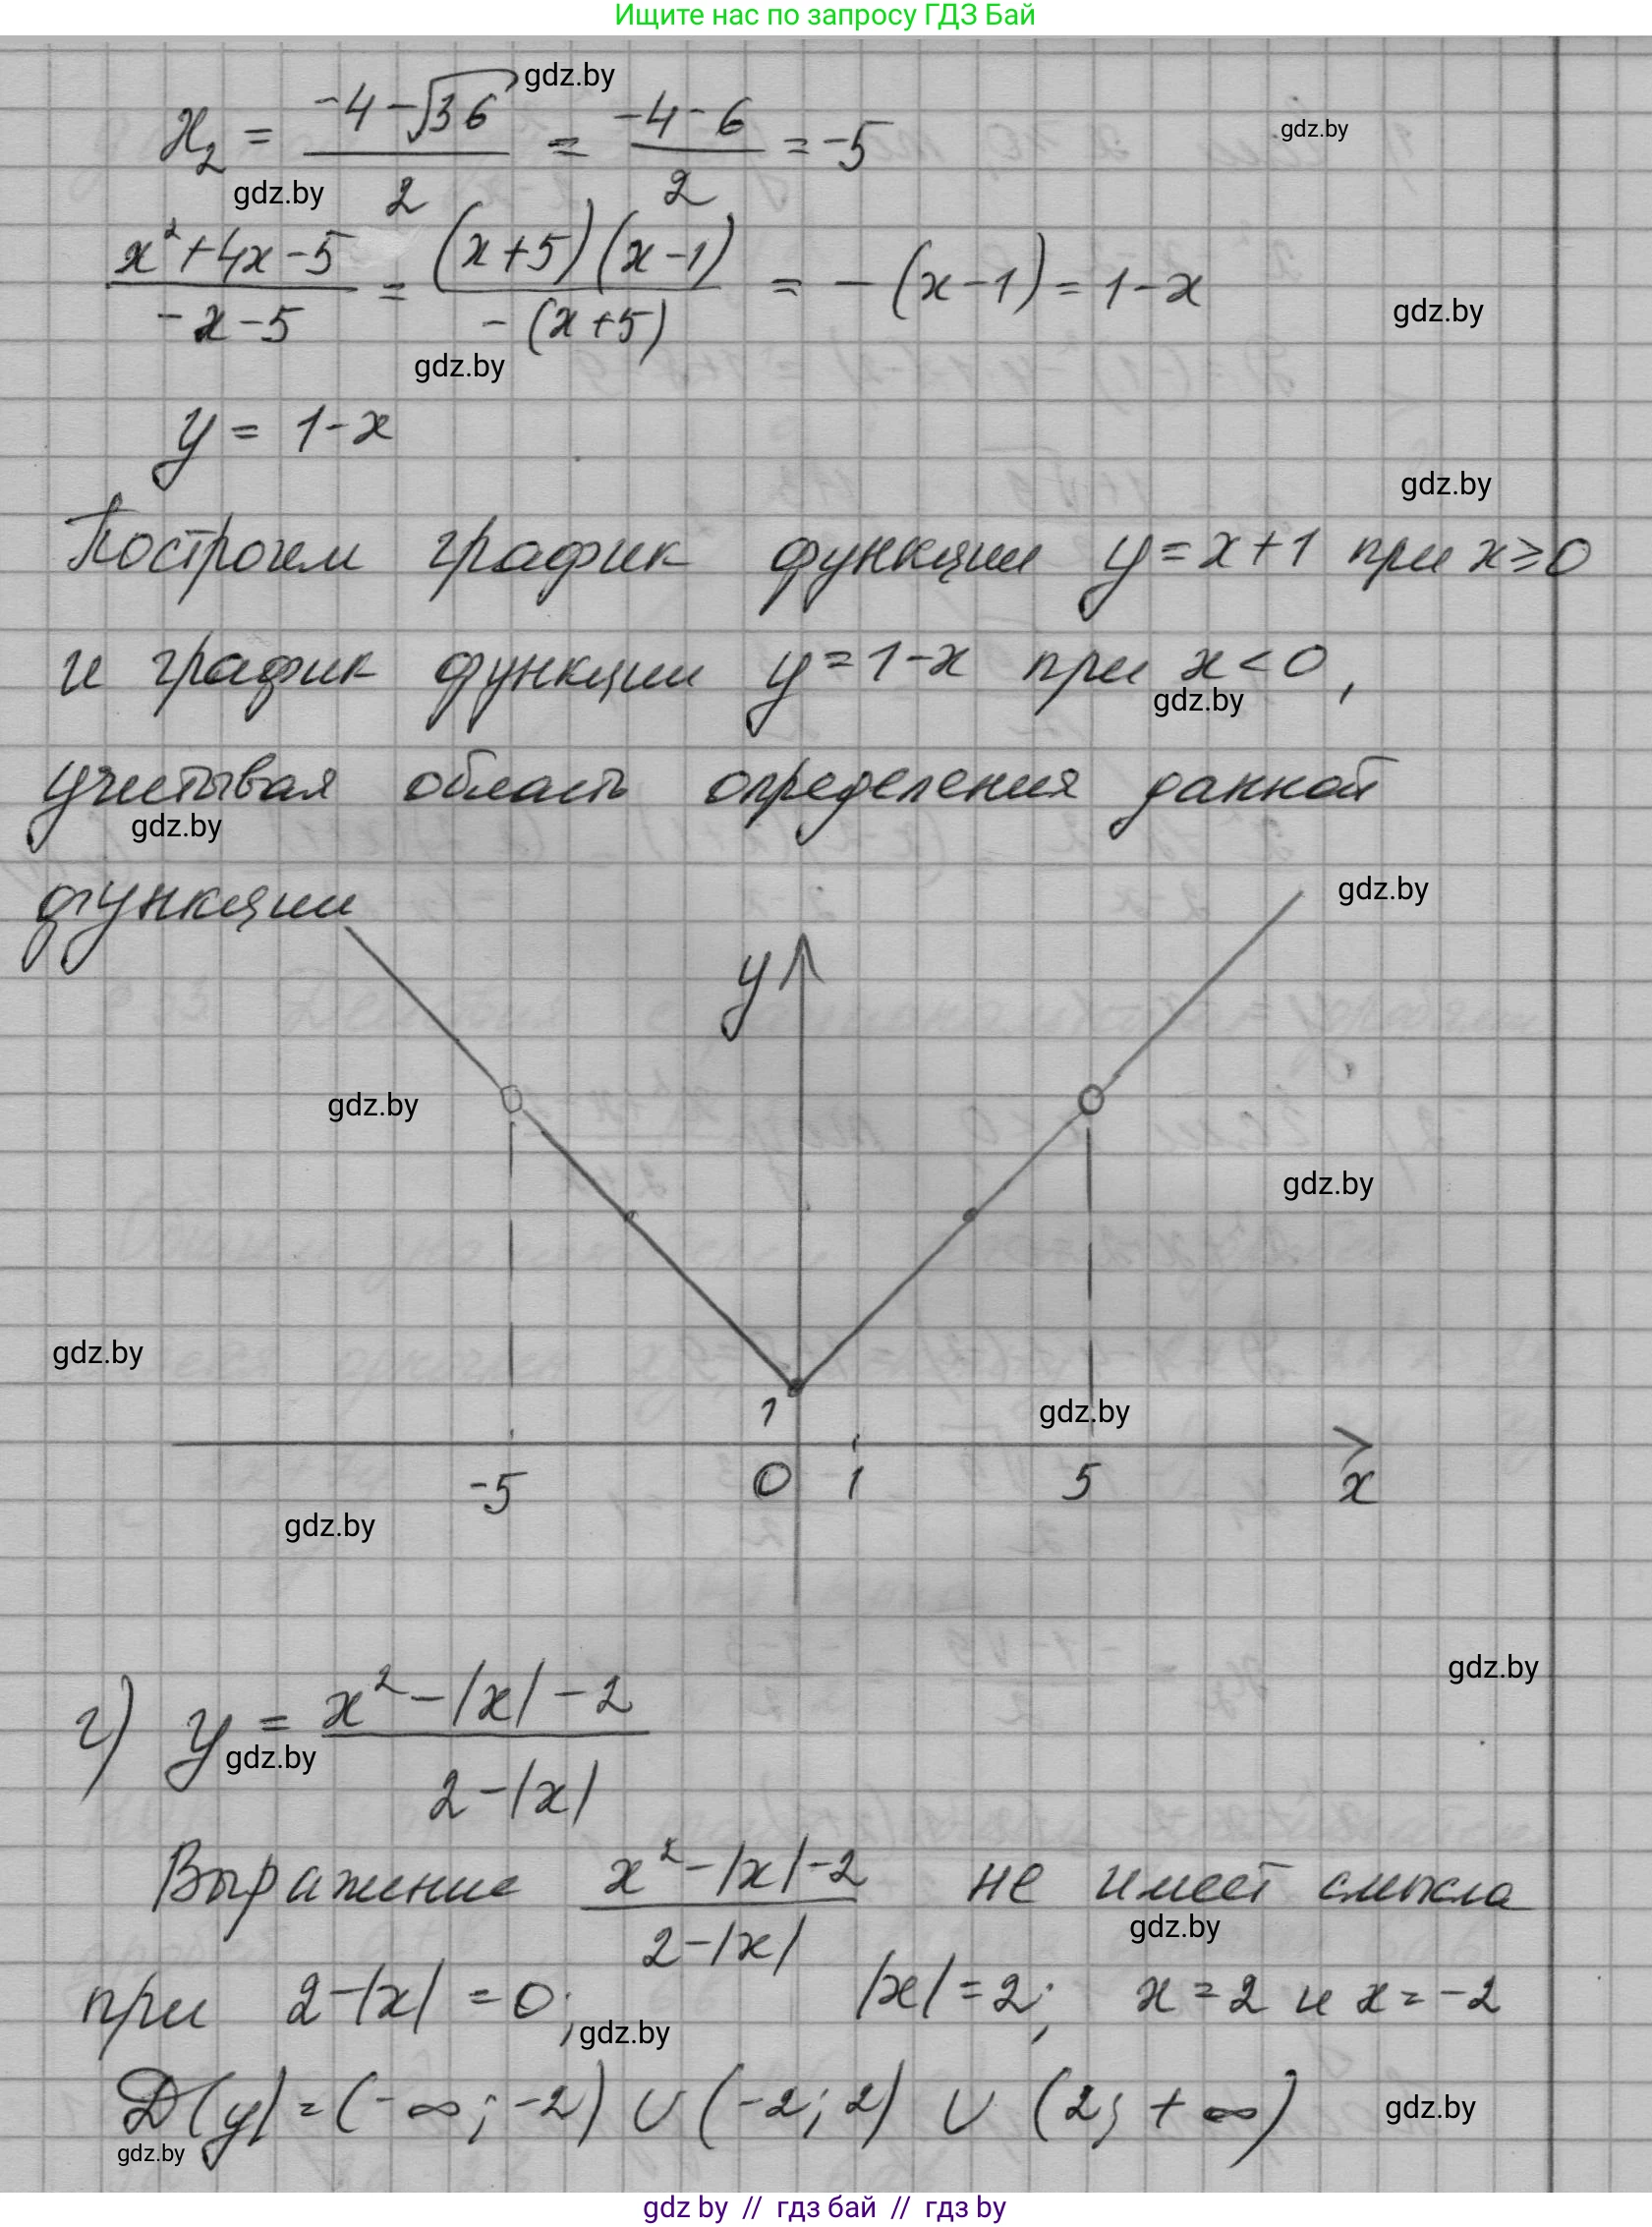 Ищите нас по запросу ГДЗ Бай
x₂ = (-4-√36)/2 = (-4-6)/2 = -5
gdz.by
gdz.by
gdz.by
(x²+4x-5)/(-x-5) = ((x+5)(x-1))/(-(x+5)) = -(x-1) = 1-x
gdz.by
gdz.by
y = 1-x
gdz.by
Построим график функции y=x+1 при x≥0
и график функции y=1-x при x<0,
gdz.by
учитывая область определения данной
gdz.by
функции
gdz.by
y
gdz.by
gdz.by
gdz.by
1
gdz.by
-5 0 1 5 x
gdz.by
gdz.by
г) y = (x²-|x|-2)/(2-|x|)
gdz.by
Выражение (x²-|x|-2)/(2-|x|) не имеет смысла
gdz.by
при 2-|x| = 0; |x|=2; x=2 и x=-2
gdz.by
D(y)=(-∞;-2) ∪ (-2;2) ∪ (2;+∞)
gdz.by
gdz.by
gdz by // гдз бай // гдз by